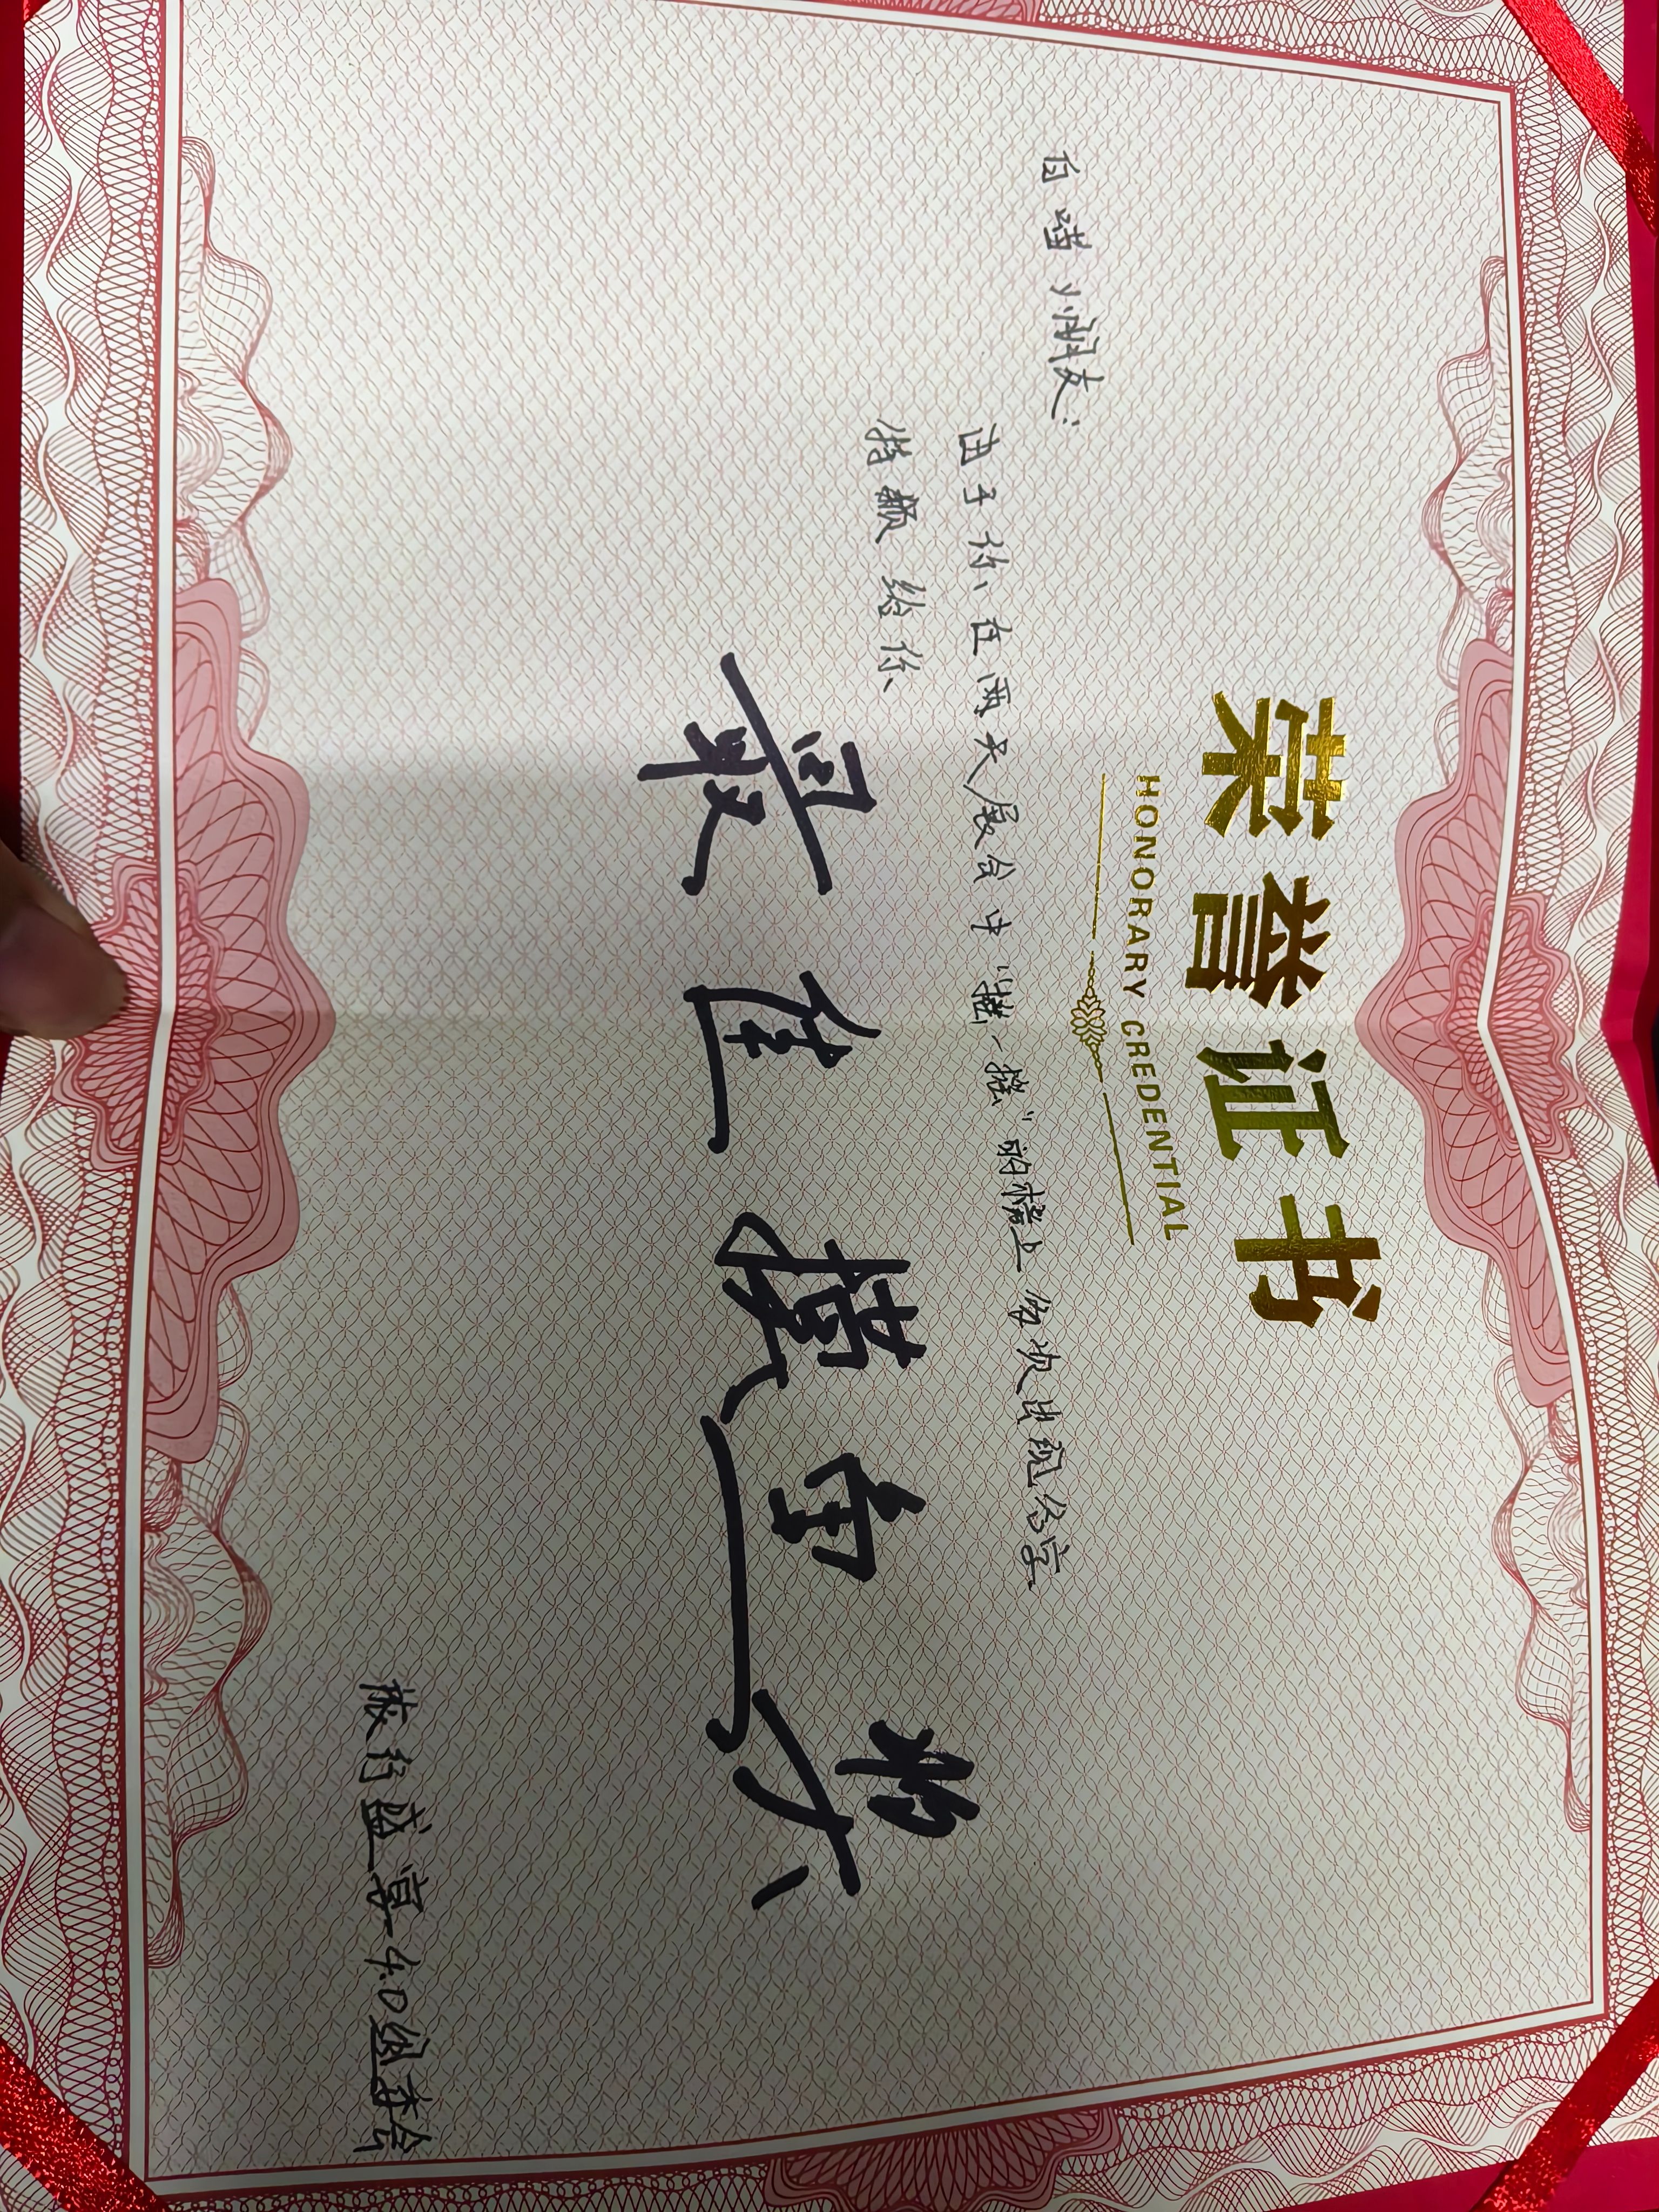 荣誉证书
HONORARY CREDENTIAL
白喵小朋友：
由于你在两天展会中“摇一摇”的榜上每次出现名字
特颁给你
最佳摸鱼奖
旅行盛宴4.0组委会